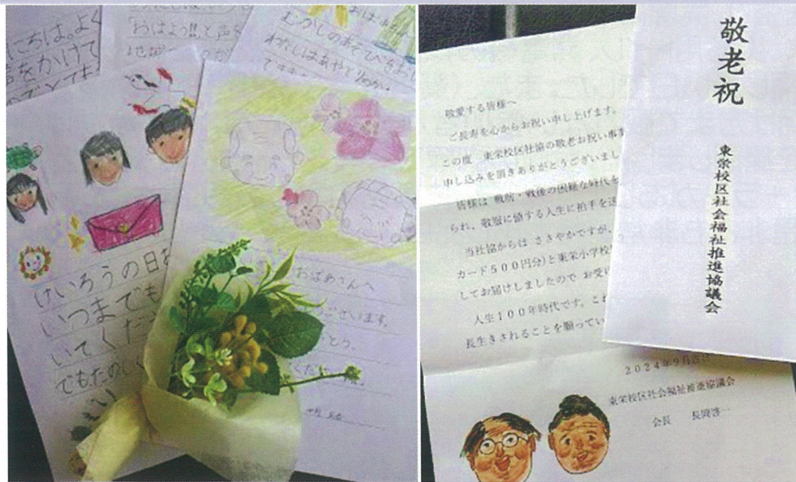 にちは。よく
をかけて
「おはよう」と声を
むかしのあそびを
わたしはあやとり
けいろうの日お
いつまでも
いてくだ
でもたのし
おばあさんへ
ございます。
敬愛する皆様へ
ご長寿を心からお祝い申し上げます。
この度 東栄校区社協の敬老お祝い事業
申し込みを頂きありがとうございまし
皆様は 戦前・戦後の困難な時代を
られ、敬服に値する人生に拍手を送
当社協からは ささやかですが、
カード500円分)と東栄小学校
してお届けしましたので お受け
人生100年時代です。これ
長生きされることを願ってい
2024年9月吉日
東栄校区社会福祉推進協議会
会長 長岡啓一
敬老祝
東栄校区社会福祉推進協議会